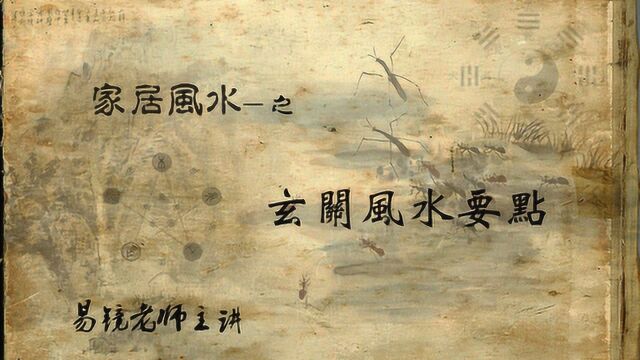 家居風水—之
玄關風水要點
易镜老师主讲